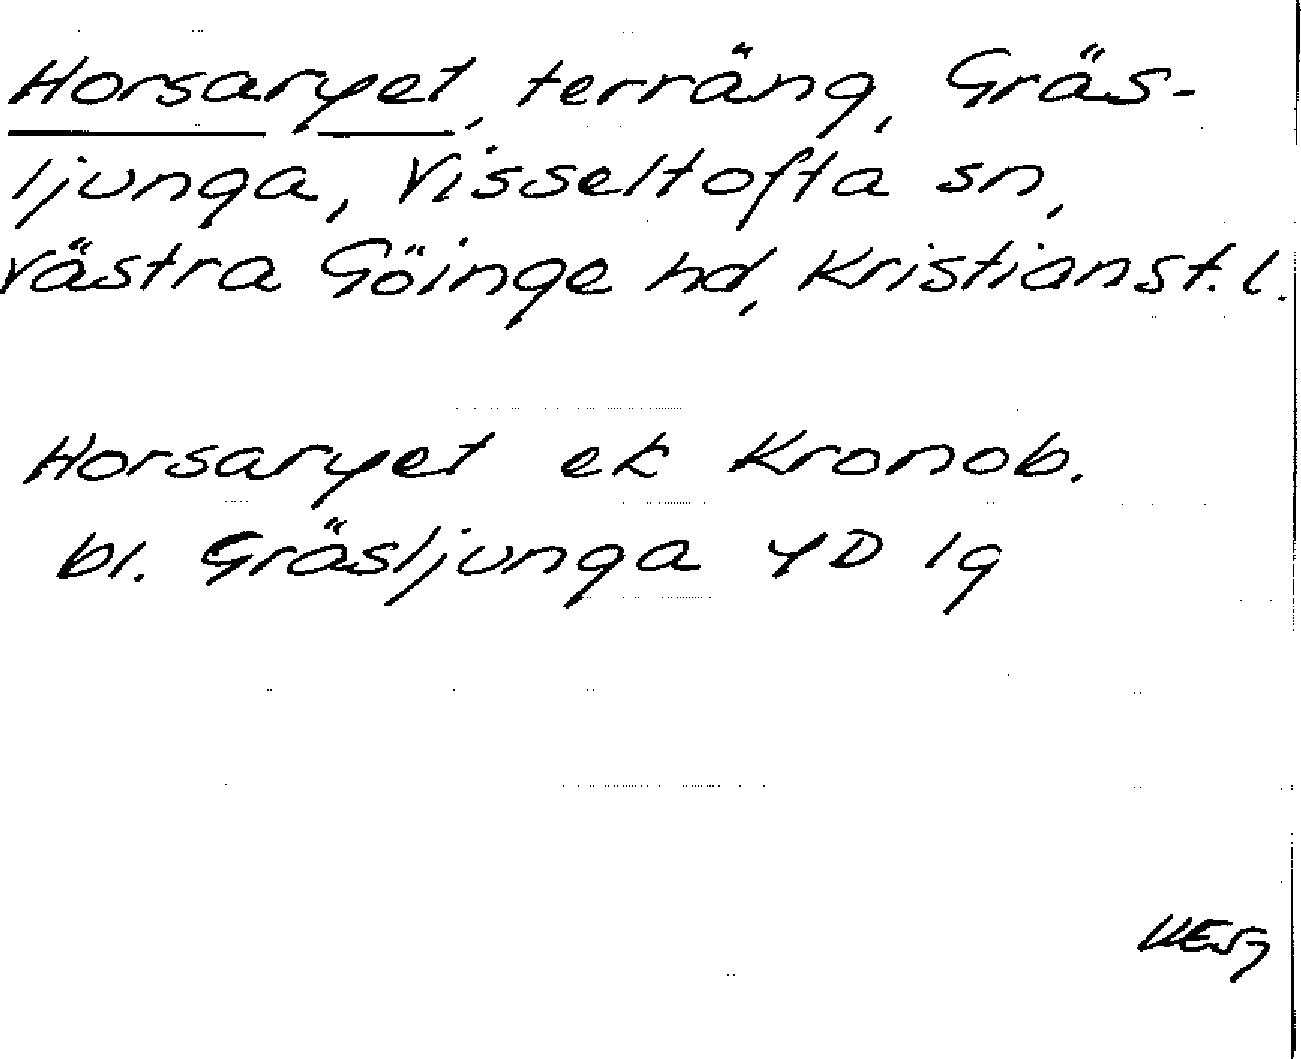 Horsaryet, terräng, Gräs-
ljunga, Visseltofta sn,
Västra Göinge hd, Kristianst. l.
Horsaryet ek Kronob.
bl. Gräsljunga YD lg